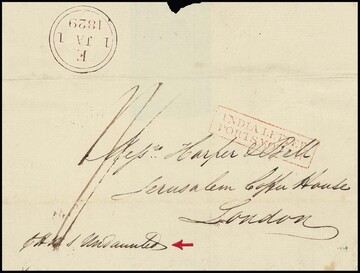 1 JA 1
1829
INDIA LETTER
PORTSMOUTH
Messrs Harper &
Jerusalem Coffee House
London
p H M S Undaunted